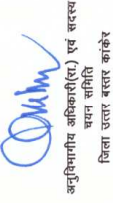 अनुविभागीय अधिकारी(रा.) एवं सदस्य
चयन समिति
जिला उत्तर बस्तर कांकेर